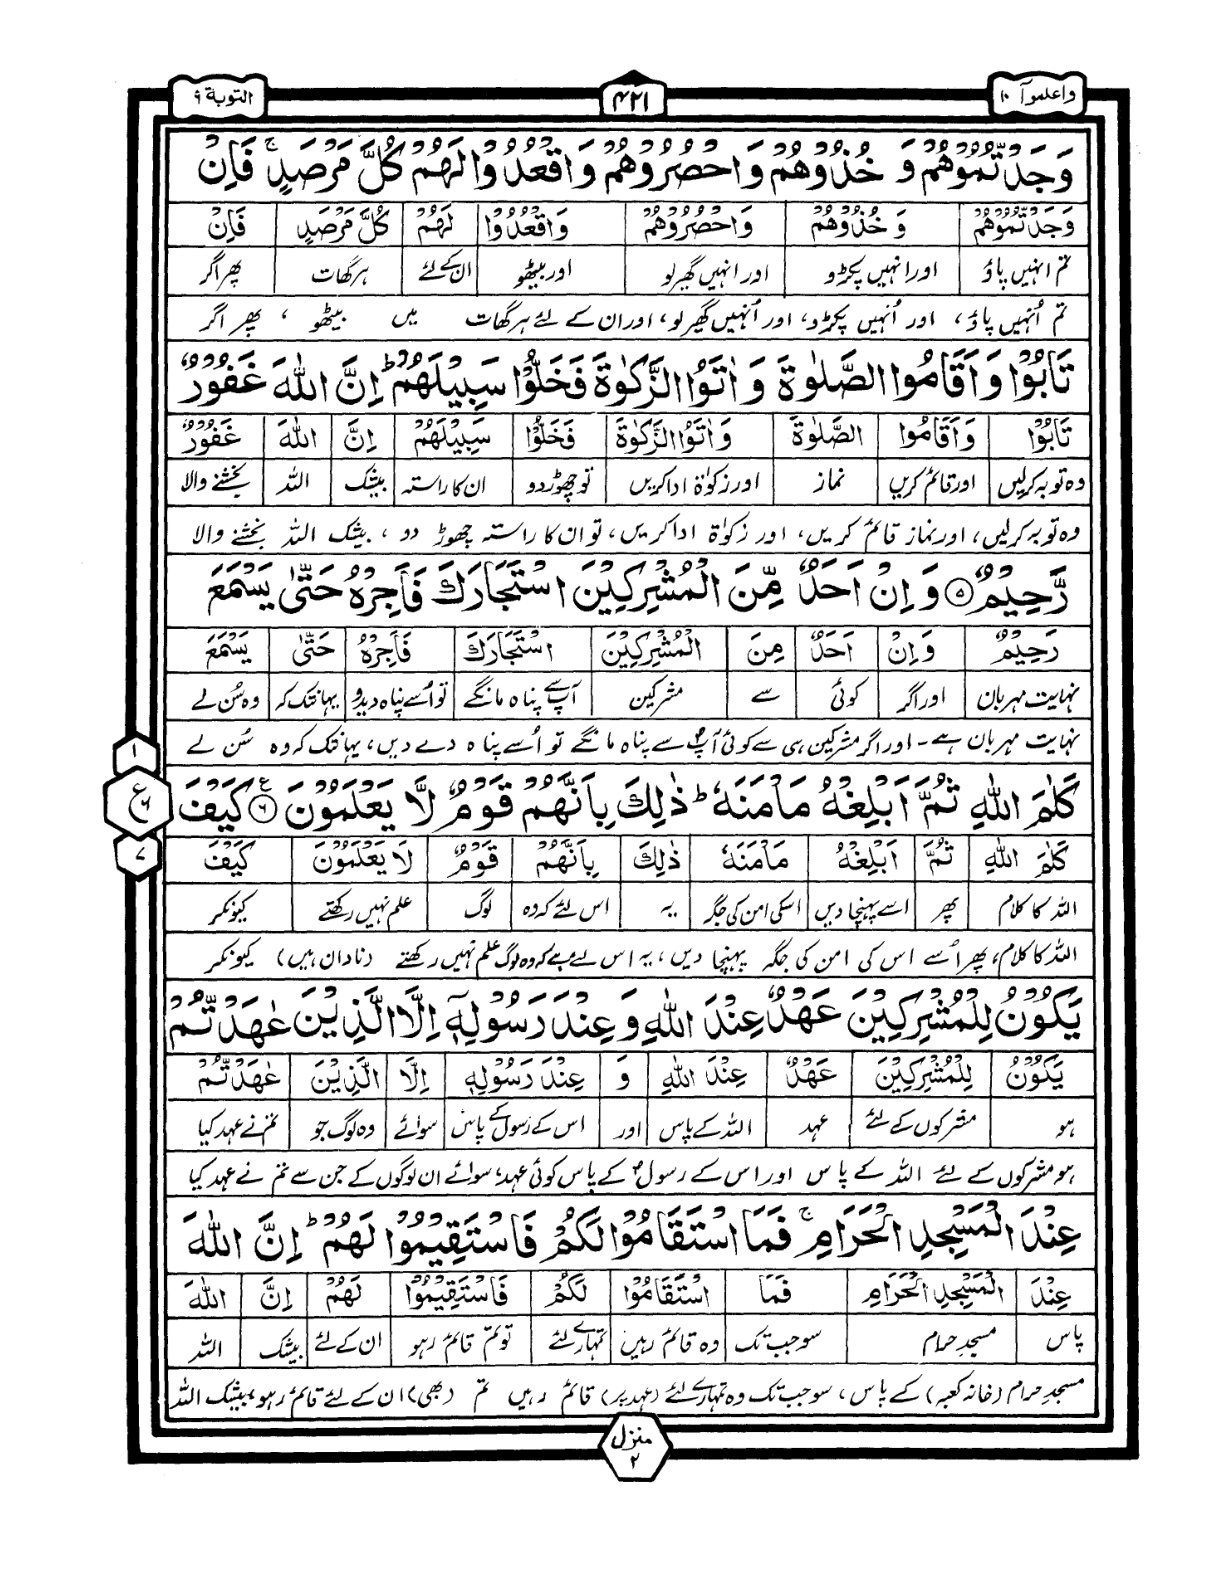 واعلموآ ١٠
۴۲۱
التوبة ۹
وَجَدْتُّمُوْهُمْ وَ خُذُوْهُمْ وَاحْصُرُوْهُمْ وَاقْعُدُوْا لَهُمْ كُلَّ مَرْصَدٍ ۚ فَاِنْ
وَجَدْتُمُوْهُمْ وَ خُذُوْهُمْ وَاحْصُرُوْهُمْ وَاقْعُدُوْا لَهُمْ كُلَّ مَرْصَدٍ فَاِنْ
تم انہیں پاؤ اور انہیں پکڑو اور انہیں گھیر لو اور بیٹھو ان کے لئے ہر گھات پھر اگر
تم اُنہیں پاؤ، اور اُنہیں پکڑو، اور اُنہیں گھیر لو، اور ان کے لئے ہر گھات میں بیٹھو ، پھر اگر
تَابُوْا وَاَقَامُوا الصَّلٰوةَ وَاٰتَوُا الزَّكٰوةَ فَخَلُّوْا سَبِيْلَهُمْ ؕ اِنَّ اللّٰهَ غَفُوْرٌ
تَابُوْا وَاَقَامُوا الصَّلٰوةَ وَاٰتَوُا الزَّكٰوةَ فَخَلُّوْا سَبِيْلَهُمْ اِنَّ اللّٰهَ غَفُوْرٌ
وہ توبہ کرلیں اور قائم کریں نماز اور زکوٰۃ ادا کریں تو چھوڑ دو ان کا راستہ بیشک اللہ بخشنے والا
وہ توبہ کرلیں، اور نماز قائم کریں، اور زکوٰۃ ادا کریں، تو ان کا راستہ چھوڑ دو ، بیشک اللہ بخشنے والا
رَّحِيْمٌ ۵ وَاِنْ اَحَدٌ مِّنَ الْمُشْرِكِيْنَ اسْتَجَارَكَ فَاَجِرْهُ حَتّٰى يَسْمَعَ
رَحِيْمٌ وَاِنْ اَحَدٌ مِنَ الْمُشْرِكِيْنَ اسْتَجَارَكَ فَاَجِرْهُ حَتّٰى يَسْمَعَ
نہایت مہربان اور اگر کوئی سے مشرکین آپ سے پناہ مانگے تو اُسے پناہ دیدو یہانتک کہ وہ سُن لے
نہایت مہربان ہے۔ اور اگر مشرکین ہی سے کوئی آپ سے پناہ مانگے تو اُسے پناہ دے دیں، یہانتک کہ وہ سُن لے
كَلٰمَ اللّٰهِ ثُمَّ اَبْلِغْهُ مَاْمَنَهٗ ؕ ذٰلِكَ بِاَنَّهُمْ قَوْمٌ لَّا يَعْلَمُوْنَ ۶ كَيْفَ
كَلٰمَ اللّٰهِ ثُمَّ اَبْلِغْهُ مَاْمَنَهٗ ذٰلِكَ بِاَنَّهُمْ قَوْمٌ لَا يَعْلَمُوْنَ كَيْفَ
اللہ کا کلام پھر اسے پہنچا دیں اسکی امن کی جگہ یہ اس لئے کہ وہ لوگ علم نہیں رکھتے کیونکر
اللہ کا کلام، پھر اُسے اس کی امن کی جگہ پہنچا دیں، یہ اس لئے ہے کہ وہ لوگ علم نہیں رکھتے (نادان ہیں) کیونکر
يَكُوْنُ لِلْمُشْرِكِيْنَ عَهْدٌ عِنْدَ اللّٰهِ وَعِنْدَ رَسُوْلِهٖٓ اِلَّا الَّذِيْنَ عٰهَدْتُّمْ
يَكُوْنُ لِلْمُشْرِكِيْنَ عَهْدٌ عِنْدَ اللّٰهِ وَ عِنْدَ رَسُوْلِهٖ اِلَّا الَّذِيْنَ عٰهَدْتُّمْ
ہو مشرکوں کے لئے عہد اللہ کے پاس اور اس کے رسول کے پاس سوائے وہ لوگ جو تم نے عہد کیا
ہو مشرکوں کے لئے اللہ کے پاس اور اس کے رسول کے پاس کوئی عہد، سوائے ان لوگوں کے جن سے تم نے عہد کیا
عِنْدَ الْمَسْجِدِ الْحَرَامِ ۚ فَمَا اسْتَقَامُوْا لَكُمْ فَاسْتَقِيْمُوْا لَهُمْ ؕ اِنَّ اللّٰهَ
عِنْدَ الْمَسْجِدِ الْحَرَامِ فَمَا اسْتَقَامُوْا لَكُمْ فَاسْتَقِيْمُوْا لَهُمْ اِنَّ اللّٰهَ
پاس مسجد حرام سو جب تک وہ قائم رہیں تمہارے لئے تو تم قائم رہو ان کے لئے بیشک اللہ
مسجد حرام (خانہ کعبہ) کے پاس، سو جب تک وہ تمہارے لئے (عہد پر) قائم رہیں تم (بھی) ان کے لئے قائم رہو، بیشک اللہ
۱
ع
۶
۷
منزل ۲